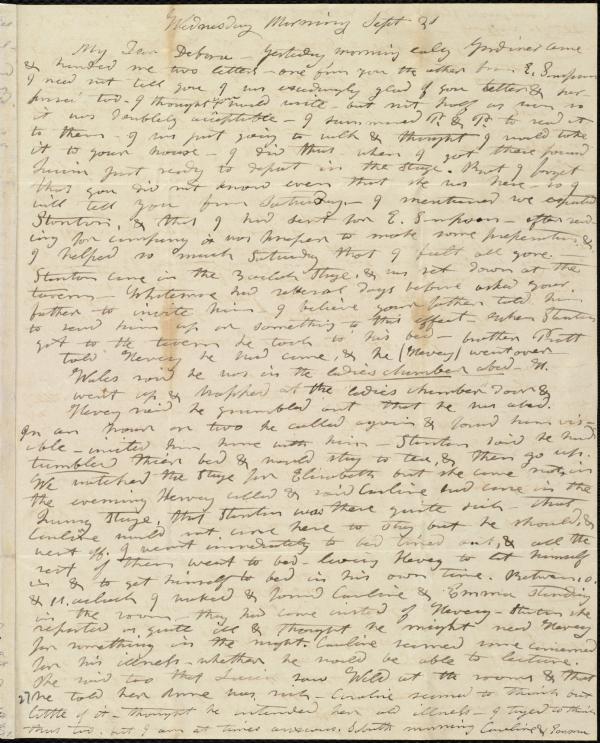 Wednesday Morning Sept 21
My Dear Debora - Yesterday morning early Gardiner came
& handed me two letters - one from you the other from E. Empson
I need not tell you I was exceedingly glad of your letter & her
too - I thought would write but not half as soon so
it was doubly acceptable - I summoned & to read it
to them - I was just going to walk & thought I would take
it to your house - I did this when I got there found
just ready to depart in the stage. But I forget
that you did not know even that she was here - so I
will tell you from Saturday - I mentioned we expected
Stanton, & that I had sent for E. Empson - after
for company is was proper to make some preparation, &
I helped so much Saturday that I felt all gone.
Stanton came in the stage, & was set down at the
tavern - Whitmore had several days before asked your
father to invite him I believe your father told him
to send him up or something to this effect - when Stanton
got to the tavern he took to his bed - brother Pratt
told Hervey he had come, & he (Hervey) went over
Wales said he was in the ladies chamber abed - H.
went up & rapped at the ladies chamber door &
Hervey said he grumbled out that he was abed.
In an hour or two he called again & found him vis-
ible - invited him home with him - Stanton said he had
tumbled their bed & would stay to tea, & then go up.
We watched the stage for Elizabeth but she came not, in
the evening Hervey called & said Caroline had come in the
stage, that Stanton was there quite sick - that
Caroline would not come here to stay but he should, &
went off. I went immediately to bed tired out, & all the
rest of them went to bed - leaving Hervey to let himself
in & to get himself to bed in his own time. Between 10
& 11 oclock I waked & found Caroline & Emma standing
in the room - they had come instead of Hervey - Stanton she
reported as quite ill & thought he might need Hervey
for something in the night. Caroline seemed some concerned
for his illness - whether he would be able to lecture.
She said too that saw Weld at the rooms & that
he told her Anne was sick - Caroline seemed to think but
little of it - thought he intended her old illness - I tryed to think
thus too. but I am at times anxious. Sabbath morning Caroline & Emma